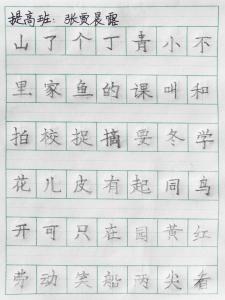 提高班：张贾晨露
山了个丁青小不
里家鱼的课叫和
拍校捉摘要冬学
花儿皮有起同鸟
开可只在园黄红
劳动笑船两尖看